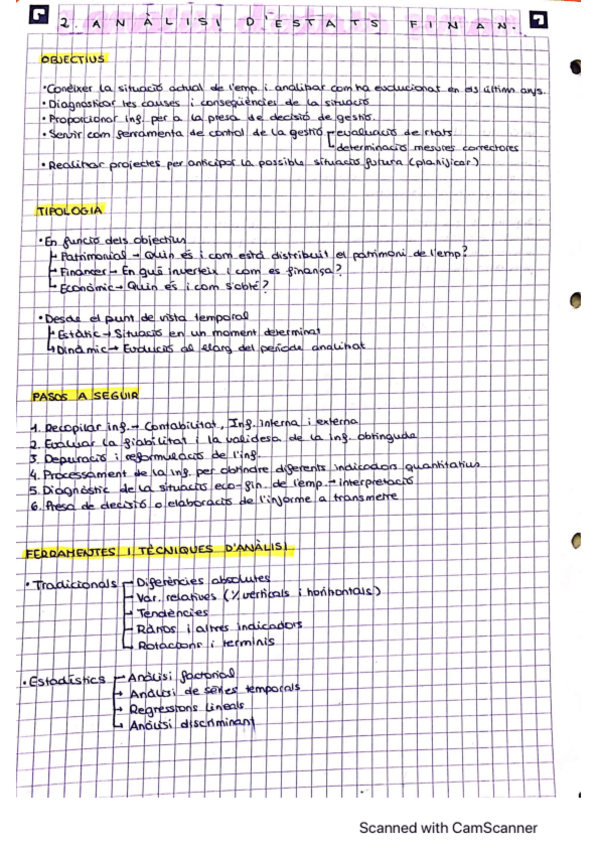 2. ANÀLISI D'ESTATS FINAN.
OBJECTIUS
•Conèixer la situació actual de l'emp i analitzar com ha evolucionat en els últims anys.
•Diagnosticar les causes i conseqüències de la situació
•Proporcionar inf. per a la presa de decisió de gestió.
•Servir com ferramenta de control de la gestió → evaluació de rtats.
→ determinació mesures correctores
•Realitzar projectes per anticipar la possible situació futura (planificar)
TIPOLOGIA
•En funció dels objectius
→ Patrimonial → Quin és i com està distribuït el patrimoni de l'emp?
→ Financer → En què inverteix i com es finança?
→ Econòmic → Quin és i com s'obté?
•Desde el punt de vista temporal
→ Estàtic → Situació en un moment determinat
→ Dinàmic → Evolució al llarg del període analitzat
PASOS A SEGUIR
1. Recopilar inf. → Contabilitat, Inf. interna i externa
2. Evaluar la fiabilitat i la validesa de la inf. obtinguda
3. Depuració i reformulació de l'inf.
4. Processament de la inf. per obtindre diferents indicadors quantitatius
5. Diagnòstic de la situació eco-fin. de l'emp. → interpretació
6. Presa de decisió o elaboració de l'informe a transmetre
FERRAMENTES I TÈCNIQUES D'ANÀLISI
•Tradicionals → Diferències absolutes
→ Var. relatives (% verticals i horitzontals)
→ Tendències
→ Ràtios i altres indicadors
→ Rotacions i terminis
•Estadístics → Anàlisi factorial
→ Anàlisi de sèries temporals
→ Regressions lineals
→ Anàlisi discriminant
Scanned with CamScanner